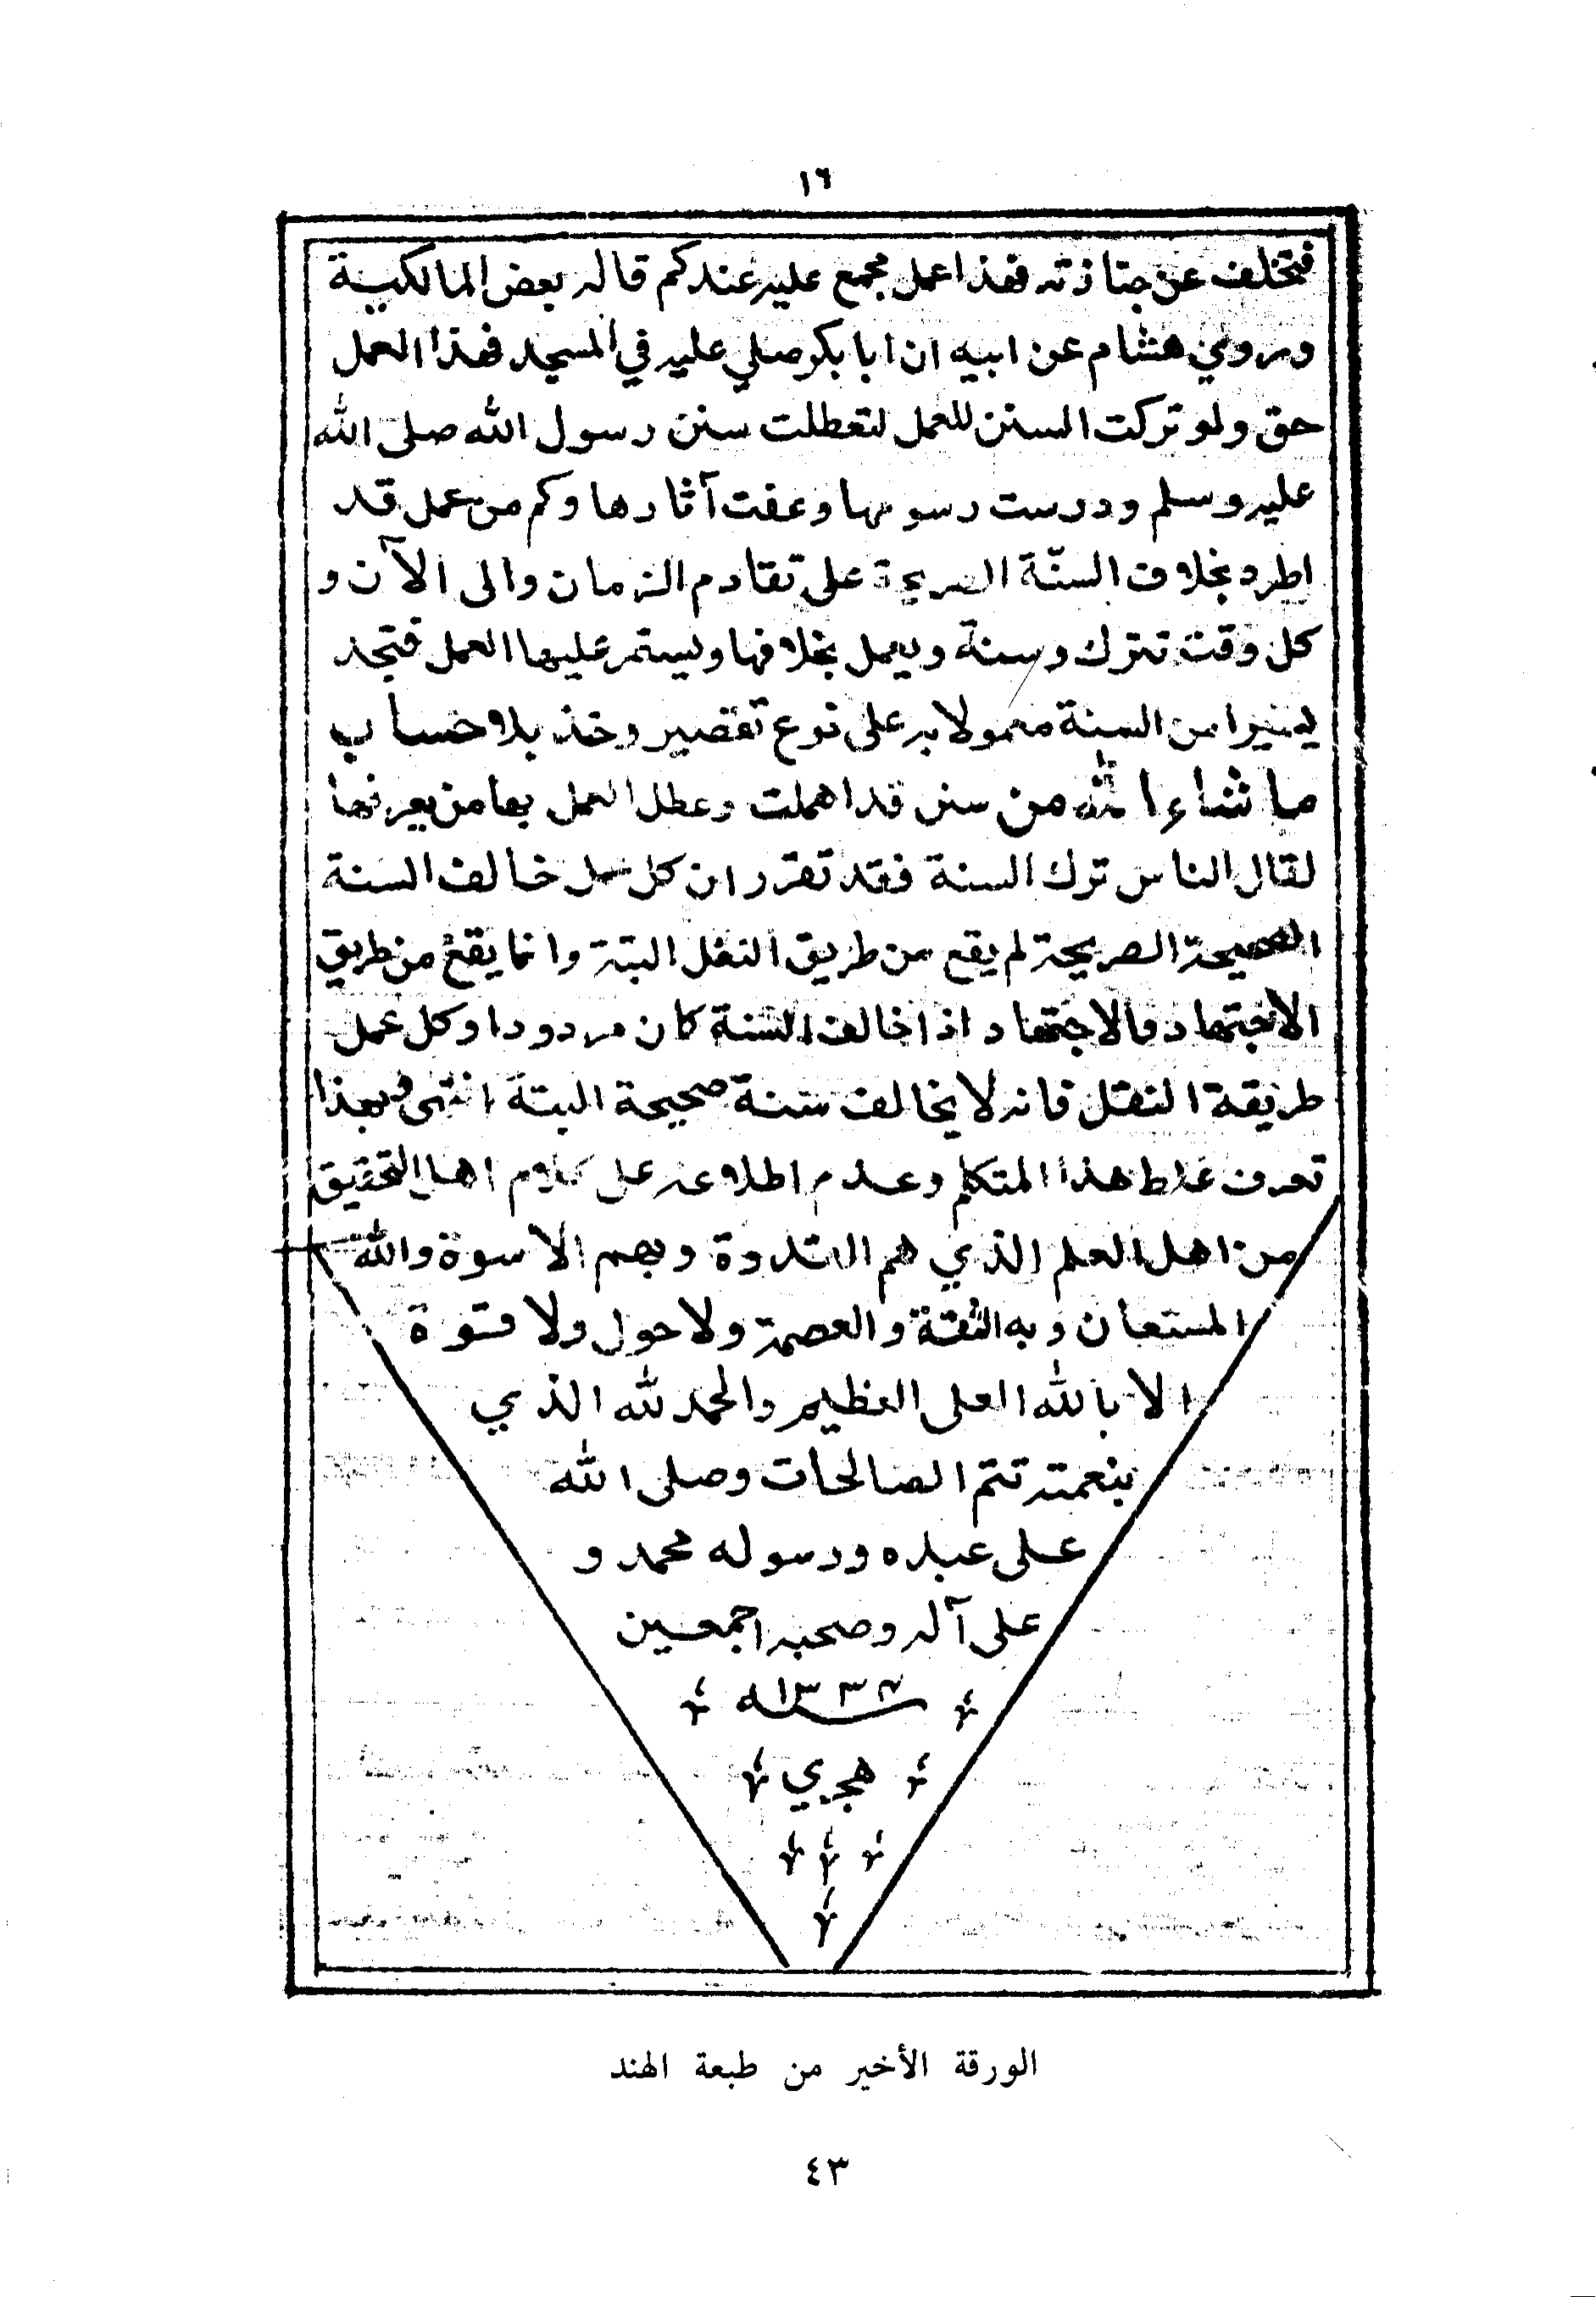 ١٦
فتخلف عن جنازته فهذا عمل مجمع عليه عندكم قاله بعض المالكية
وروي هشام عن ابيه ان ابا بكر صلي عليه في المسجد فهذا العمل
حق ولو تركت السنن للعمل لتعطلت سنن رسول الله صلى الله
عليه وسلم ودرست رسومها وعفت آثارها وكم من عمل قد
اطرد بخلاف السنّة الصريحة على تقادم الزمان والى الآن و
كل وقت تترك وسنة ويعمل بخلافها ويستمر عليها العمل فتجد
يسيرا من السنة معمولا به على نوع تقصير وخذ بلا حساب
ما شاء الله من سنن قد اهملت وعطل العمل بها من يعرفها
لقال الناس ترك السنة فقد تقرر ان كل عمل خالف السنة
الصحيحة الصريحة لم يقع من طريق النقل البتة وانما يقع من طريق
الاجتهاد فالاجتهاد اذا خالف السنة كان مردودا وكل عمل
طريقة النقل فانه لا يخالف سنة صحيحة البتة انتهى وبهذا
تعرف غلط هذا المتكلم وعدم اطلاعه على كلام اهل التحقيق
من اهل العلم الذي هم القدوة وبهم الاسوة والله
المستعان وبه الثقة والعصمة ولا حول ولا قوة
الا بالله العلى العظيم والحمد لله الذي
بنعمته تتم الصالحات وصلى الله
على عبده ورسوله محمد و
على آله وصحبه اجمعين
سنه ١٣٣٧
هجري
الورقة الأخير من طبعة الهند
٤٣